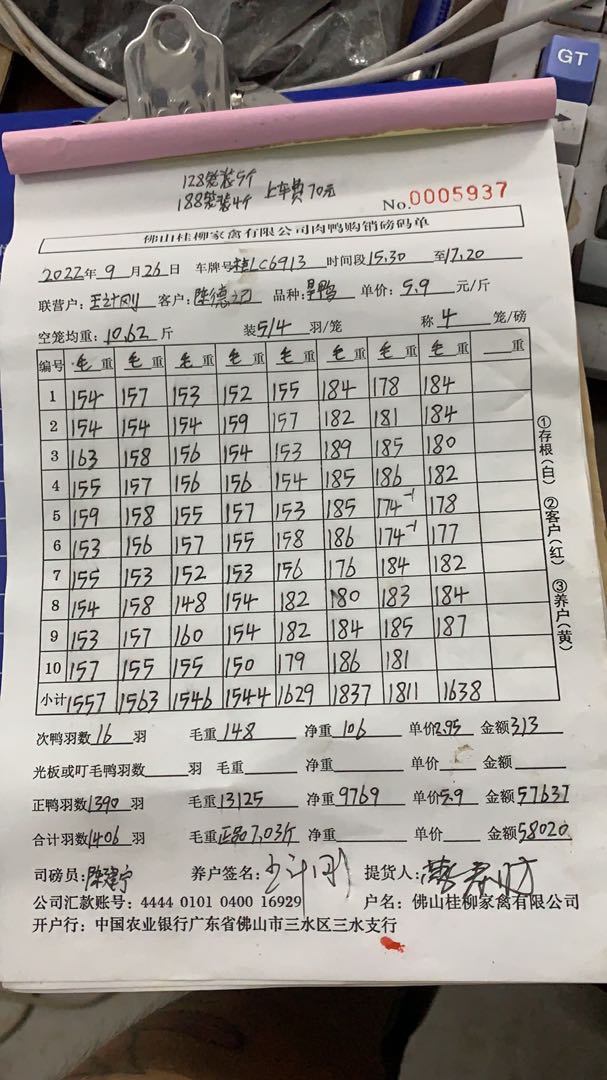 GT
128笼装5个
188笼装4个 上车费70元
No.0005937
佛山桂柳家禽有限公司肉鸭购销磅码单
2022年 9 月 26 日 车牌号桂LC6913 时间段15.30 至17.20
联营户: 王计刚 客户: 陈德记 品种: 旱鸭 单价: 5.9 元/斤
空笼均重: 10.62 斤 装5/4 羽/笼 称 4 笼/磅
编号 毛重 毛重 毛重 毛重 毛重 毛重 毛重 毛重 重
1 154 157 153 152 155 184 178 184
2 154 154 154 159 157 182 181 184
3 163 158 156 154 153 189 185 180
4 155 157 156 156 154 185 186 182
5 159 158 155 157 153 185 174-1 178
6 153 156 157 155 158 186 174-1 177
7 155 153 152 153 156 176 184 182
8 154 158 148 154 182 180 183 184
9 153 157 160 154 182 184 185 187
10 157 155 155 150 179 186 181
小计 1557 1563 1546 1544 1629 1837 1811 1638
次鸭羽数 16 羽 毛重 148 净重 106 单价2.95 金额313
光板或叮毛鸭羽数 羽 毛重 净重 单价 金额
正鸭羽数1390 羽 毛重13125 净重9769 单价5.9 金额57637
合计羽数1406 羽 毛重正品7.03斤 净重 单价 金额58020
司磅员: 陈建宁 养户签名: 王计刚 提货人:
公司汇款账号: 4444 0101 0400 16929 户名: 佛山桂柳家禽有限公司
开户行: 中国农业银行广东省佛山市三水区三水支行
①存根(白) ②客户(红) ③养户(黄)